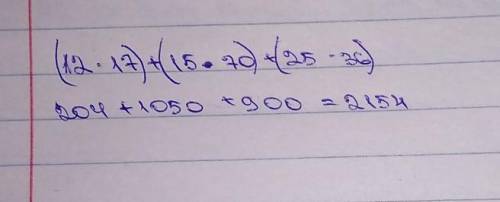 (12 · 17) + (15 · 70) + (25 · 36)
204 + 1050 + 900 = 2154